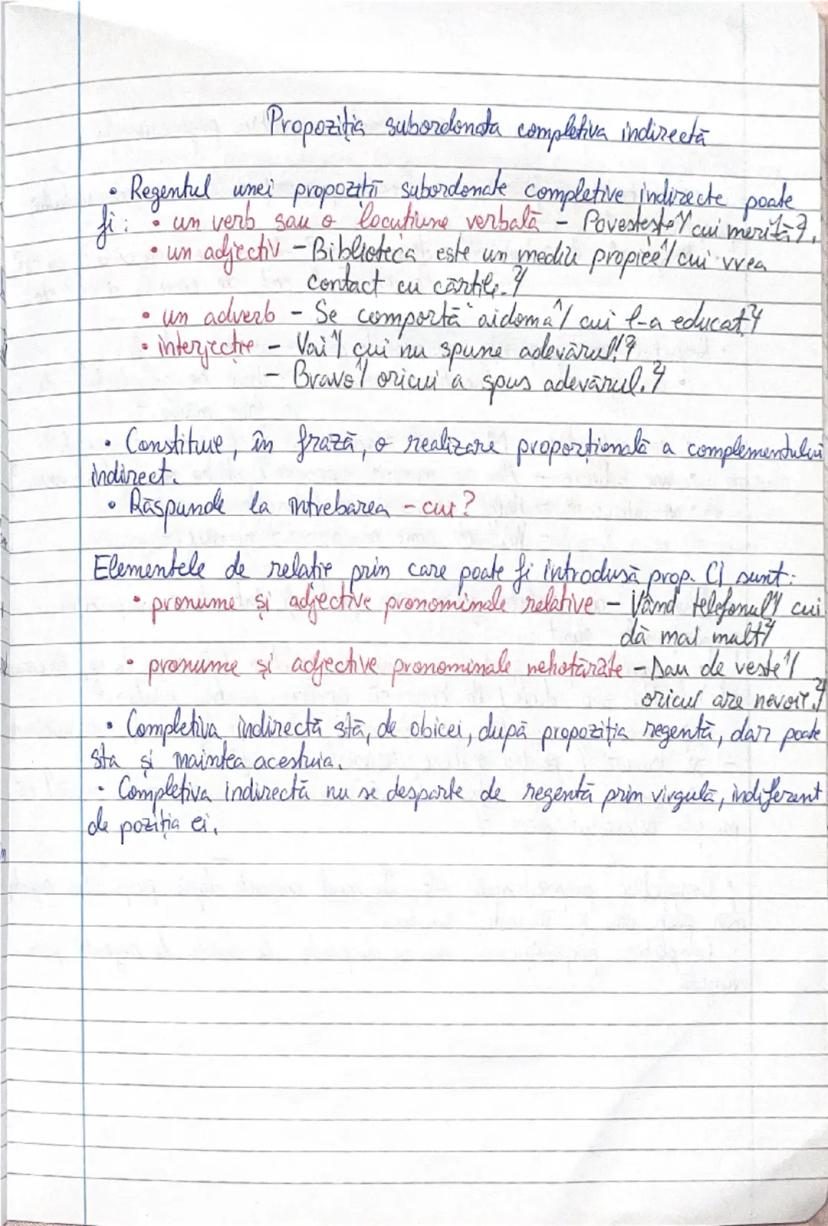 Propoziția subordonata completiva indirectă
• Regentul unei propoziții subordonate completive indirecte poate
fi: • un verb sau o locuțiune verbală – Povestește¹/ cui merită².
• un adjectiv – Biblioteca este un mediu propice¹/ cui vrea
contact cu cărțile.²/
• un adverb – Se comportă aidoma¹/ cui l-a educat²/
• interjecție – Vai¹/ cui nu spune adevărul!²/
– Bravo¹/ oricui a spus adevărul.²/
• Constituie, în frază, o realizare proporțională a complementului
indirect.
• Răspunde la intrebarea – cui?
Elementele de relație prin care poate fi introdusă prop. CI sunt:
• pronume și adjective pronominale relative – Vând telefonul¹/ cui
dă mai mult²/
• pronume și adjective pronominale nehotărâte – Dau de veste¹/
oricui are nevoie.²/
• Completiva indirectă stă, de obicei, după propoziția regentă, dar poate
sta și maintea acestuia.
• Completiva indirectă nu se desparte de regentă prim virgulă, indiferent
de poziția ei.